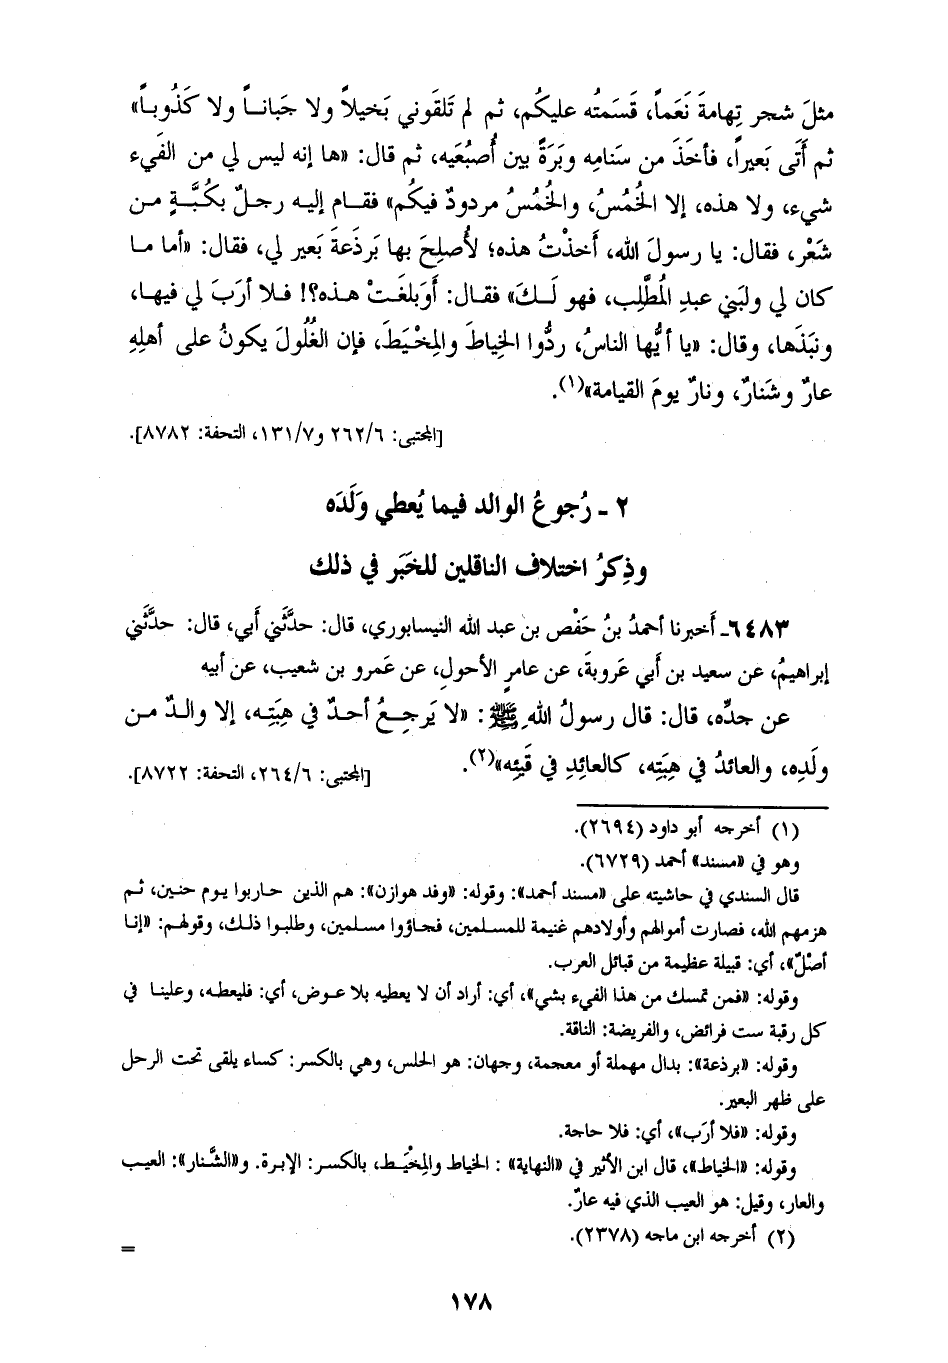 مثلَ شجر تِهامةَ نَعَماً، قَسَمتُه عليكُم، ثم لم تَلقَوني بَخيلاً ولا جَباناً ولا كَذُوباً»
ثم أتَى بَعيراً، فأخَذَ من سَنامِه وبَرَةً بين أُصبُعَيه، ثم قال: «ها إنه ليس لي من الفَيء
شيء، ولا هذه، إلا الخُمُسُ، والخُمُسُ مردودٌ فيكُم» فقام إليه رجلٌ بكُبَّةٍ من
شَعْر، فقال: يا رسولَ الله، أخذْتُ هذه؛ لأُصلِحَ بها بَرذَعةَ بَعير لي، فقال: «أما ما
كان لي ولبَني عبدِ المُطَّلِب، فهو لَكَ» فقال: أوَبلَغَتْ هذه؟! فلا أرَبَ لي فيها،
ونبَذَها، وقال: «يا أيُّها الناسُ، ردُّوا الخِياطَ والمِخْيَطَ، فإن الغُلُولَ يكونُ على أهلِهِ
عارٌ وشَنارٌ، ونارٌ يومَ القيامة»(١).
[المجتبى: ٢٦٢/٦ و١٣١/٧، التحفة: ٨٧٨٢].
٢ ـ رُجوعُ الوالد فيما يُعطي وَلَدَه
وذِكرُ اختلاف الناقلين للخَبَر في ذلك
٦٤٨٣ـ أخبرنا أحمدُ بنُ حَفْص بن عبد الله النيسابوري، قال: حدَّثَني أَبي، قال: حدَّثَني
إبراهيمُ، عن سعيد بن أَبي عَروبةَ، عن عامرٍ الأحولِ، عن عَمرو بن شعيب، عن أبيه
عن جدِّه، قال: قال رسولُ اللهِ ﷺ: «لا يَرجِعُ أحدٌ في هِبَتِه، إلا والدٌ من
ولَدِه، والعائدُ في هِبَتِه، كالعائِدِ في قَيئِه»(٢).
[المجتبى: ٢٦٤/٦، التحفة: ٨٧٢٢].
(١) أخرجه أبو داود (٢٦٩٤).
وهو في «مسند» أحمد (٦٧٢٩).
قال السندي في حاشيته على «مسند أحمد»: وقوله: «وفد هوازن»: هم الذين حاربوا يوم حنين، ثم
هزمهم الله، فصارت أموالهم وأولادهم غنيمة للمسلمين، فجاؤوا مسلمين، وطلبوا ذلك، وقولهم: «إنا
أصْلٌ»، أي: قبيلة عظيمة من قبائل العرب.
وقوله: «فمن تمسك من هذا الفيء بشي»، أي: أراد أن لا يعطيه بلا عوض، أي: فليعطه، وعلينا في
كل رقبة ست فرائض، والفريضة: الناقة.
وقوله: «برذعة»: بدال مهملة أو معجمة، وجهان: هو الحلس، وهي بالكسر: كساء يلقى تحت الرحل
على ظهر البعير.
وقوله: «فلا أرَب»، أي: فلا حاجة.
وقوله: «الخياط»، قال ابن الأثير في «النهاية» : الخياط والمِخْيَط، بالكسر: الإبرة. و«الشَّنار»: العيب
والعار، وقيل: هو العيب الذي فيه عارٌ.
(٢) أخرجه ابن ماجه (٢٣٧٨).
=
١٧٨